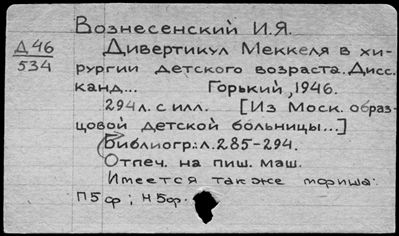 Вознесенский И.Я.
Д 46
534
Дивертикул Меккеля в хи-
рургии детского возраста. Дисс.
канд... Горький, 1946.
294 л. с илл. [Из Моск. образ-
цовой детской больницы...]
Библиогр: л. 285-294.
Отпеч. на пиш. маш.
Имеется также мфиша:
П5ф; Н5ф.